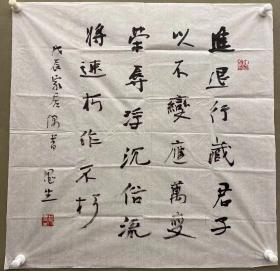 進退行藏君子
以不變應萬變
榮辱浮沉俗流
將速朽作不朽
戊辰家居偶書 墨生